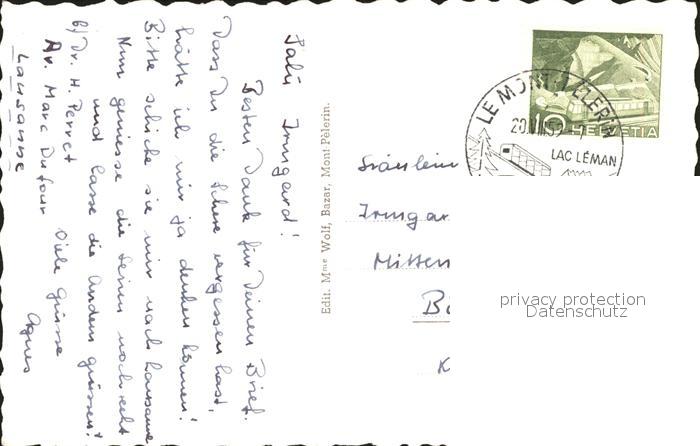 Salü Irmgard!
Besten Dank für Deinen Brief.
Dass Du die Schere vergessen hast,
hätte ich mir ja denken können!
Bitte schicke sie mir nach Lausanne
Nun geniesse die Ferien noch recht
und lasse die Andern grüssen!
b/Dr. H. Perret
Av. Marc Dufour
Lausanne
Viele Grüsse
Agnes
Edit. Mme Wolf, Bazar, Mont-Pèlerin.
LE MONT PÈLERIN
20.VII.52-7
LAC LÉMAN
10 HELVETIA
Fräulein
Irmgar
Mitten
Bi
K
privacy protection
Datenschutz